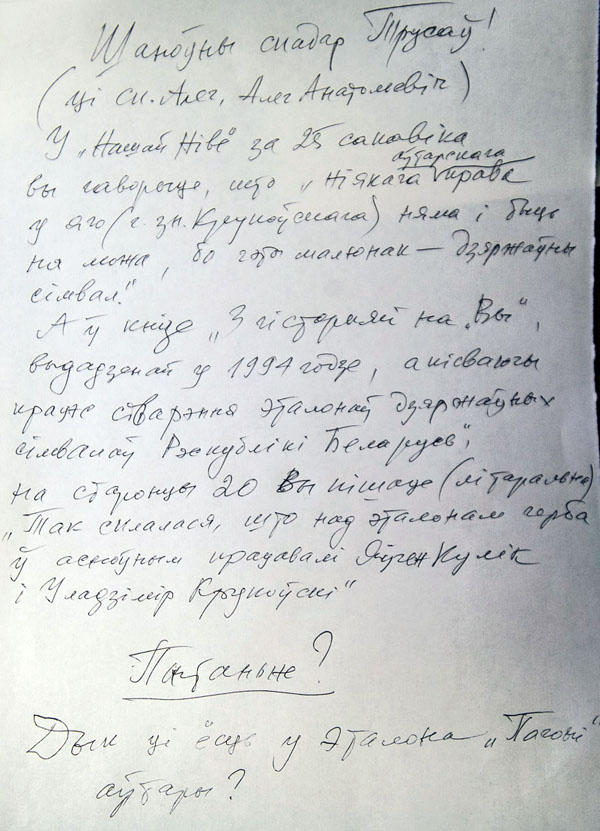 Шаноўны спадар Трусаў!
(ці сп. Алег, Алег Анатолевіч)
У „Нашай Ніве" за 25 сакавіка
аўтарскага
вы гаворыце, што „Ніякага права
у яго (г. зн. Крукоўскага) няма і быць
не можа, бо гэты малюнак — дзяржаўны
сімвал."
А ў кнізе „З гісторыяй на „Вы",
выдадзенай у 1994 годзе, апісваючы
працэс стварэння эталонаў дзяржаўных
сімвалаў Рэспублікі Беларусь",
на старонцы 20 Вы пішаце (літаральна)
„Так склалася, што над эталонам герба
ў асноўным працавалі Яўген Кулік
і Уладзімір Крукоўскі"
Пытаньне?
Дык ці ёсць у эталона „Пагоні"
аўтары?